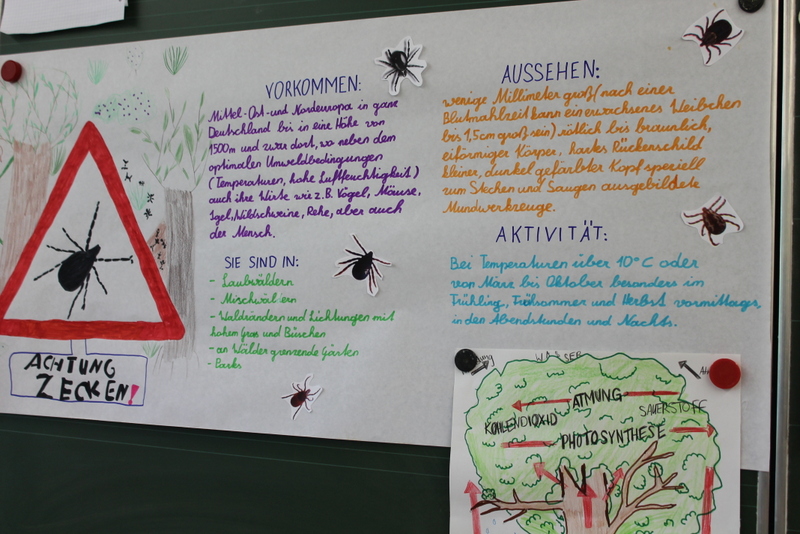 VORKOMMEN:
Mittel-Ost-und Nordeuropa in ganz
Deutschland bis in eine Höhe von
1500m und zwar dort, wo neben dem
optimalen Umweldbedingungen
(Temperaturen, hohe Luftfeuchtigkeit)
auch ihre Wirte wie z.B. Vögel, Mäuse,
Igel, Wildschweine, Rehe, aber auch
der Mensch.
SIE SIND IN:
- Laubwäldern
- Mischwäldern
- Waldrändern und Lichtungen mit
hohem Gras und Büschen
- an Wälder grenzende Gärten
- Parks
ACHTUNG
ZECKEN!
AUSSEHEN:
wenige Millimeter groß (nach einer
Blutmahlzeit kann ein erwachsenes Weibchen
bis 1,5cm groß sein) rötlich bis braunlich,
eiförmiger Körper, hartes Rückenschild
kleiner, dunkel gefärbter Kopf speziell
zum Stechen und Saugen ausgebildete
Mundwerkzeuge.
AKTIVITÄT:
Bei Temperaturen über 10°C oder
von März bis Oktober besonders im
Frühling, Frühsommer und Herbst vormittags,
in den Abendstunden und Nachts.
WASSER
ATMUNG
SAUERSTOFF
KOHLENDIOXID
PHOTOSYNTHESE